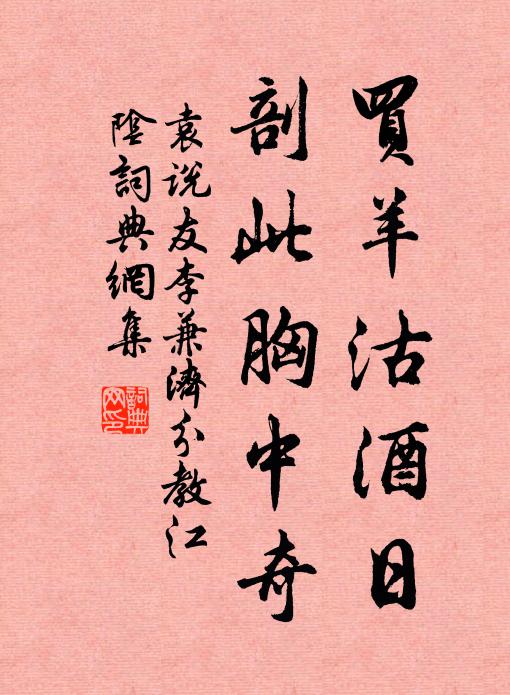 買羊沽酒日
剖此胸中奇
袁说友李兼濟分教江
陰詞典網集
詞典
网印